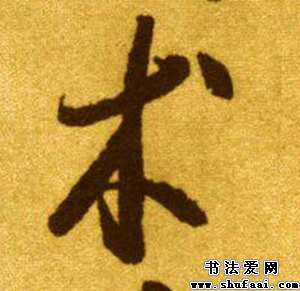 术
书法爱网
www.shufaai.com